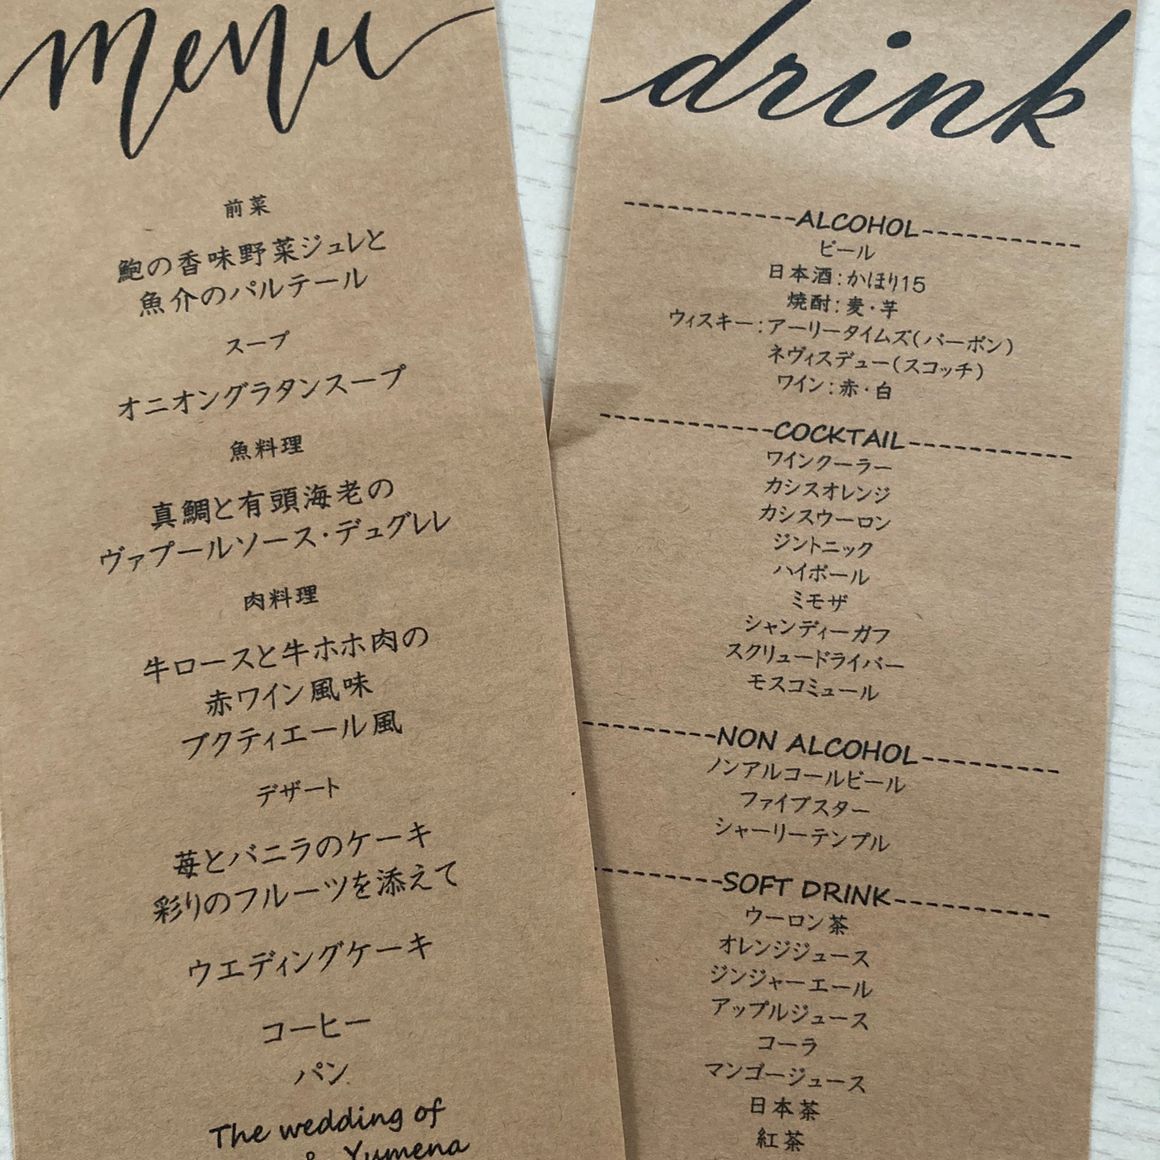 menu
前菜
鮑の香味野菜ジュレと
魚介のパルテール
スープ
オニオングラタンスープ
魚料理
真鯛と有頭海老の
ヴァプールソース・デュグレレ
肉料理
牛ロースと牛ホホ肉の
赤ワイン風味
ブクティエール風
デザート
苺とバニラのケーキ
彩りのフルーツを添えて
ウエディングケーキ
コーヒー
パン
The wedding of
& Yumena
drink
ALCOHOL
ビール
日本酒:かほり15
焼酎:麦・芋
ウィスキー:アーリータイムズ(バーボン)
ネヴィスデュー(スコッチ)
ワイン:赤・白
COCKTAIL
ワインクーラー
カシスオレンジ
カシスウーロン
ジントニック
ハイボール
ミモザ
シャンディーガフ
スクリュードライバー
モスコミュール
NON ALCOHOL
ノンアルコールビール
ファイブスター
シャーリーテンプル
SOFT DRINK
ウーロン茶
オレンジジュース
ジンジャーエール
アップルジュース
コーラ
マンゴージュース
日本茶
紅茶